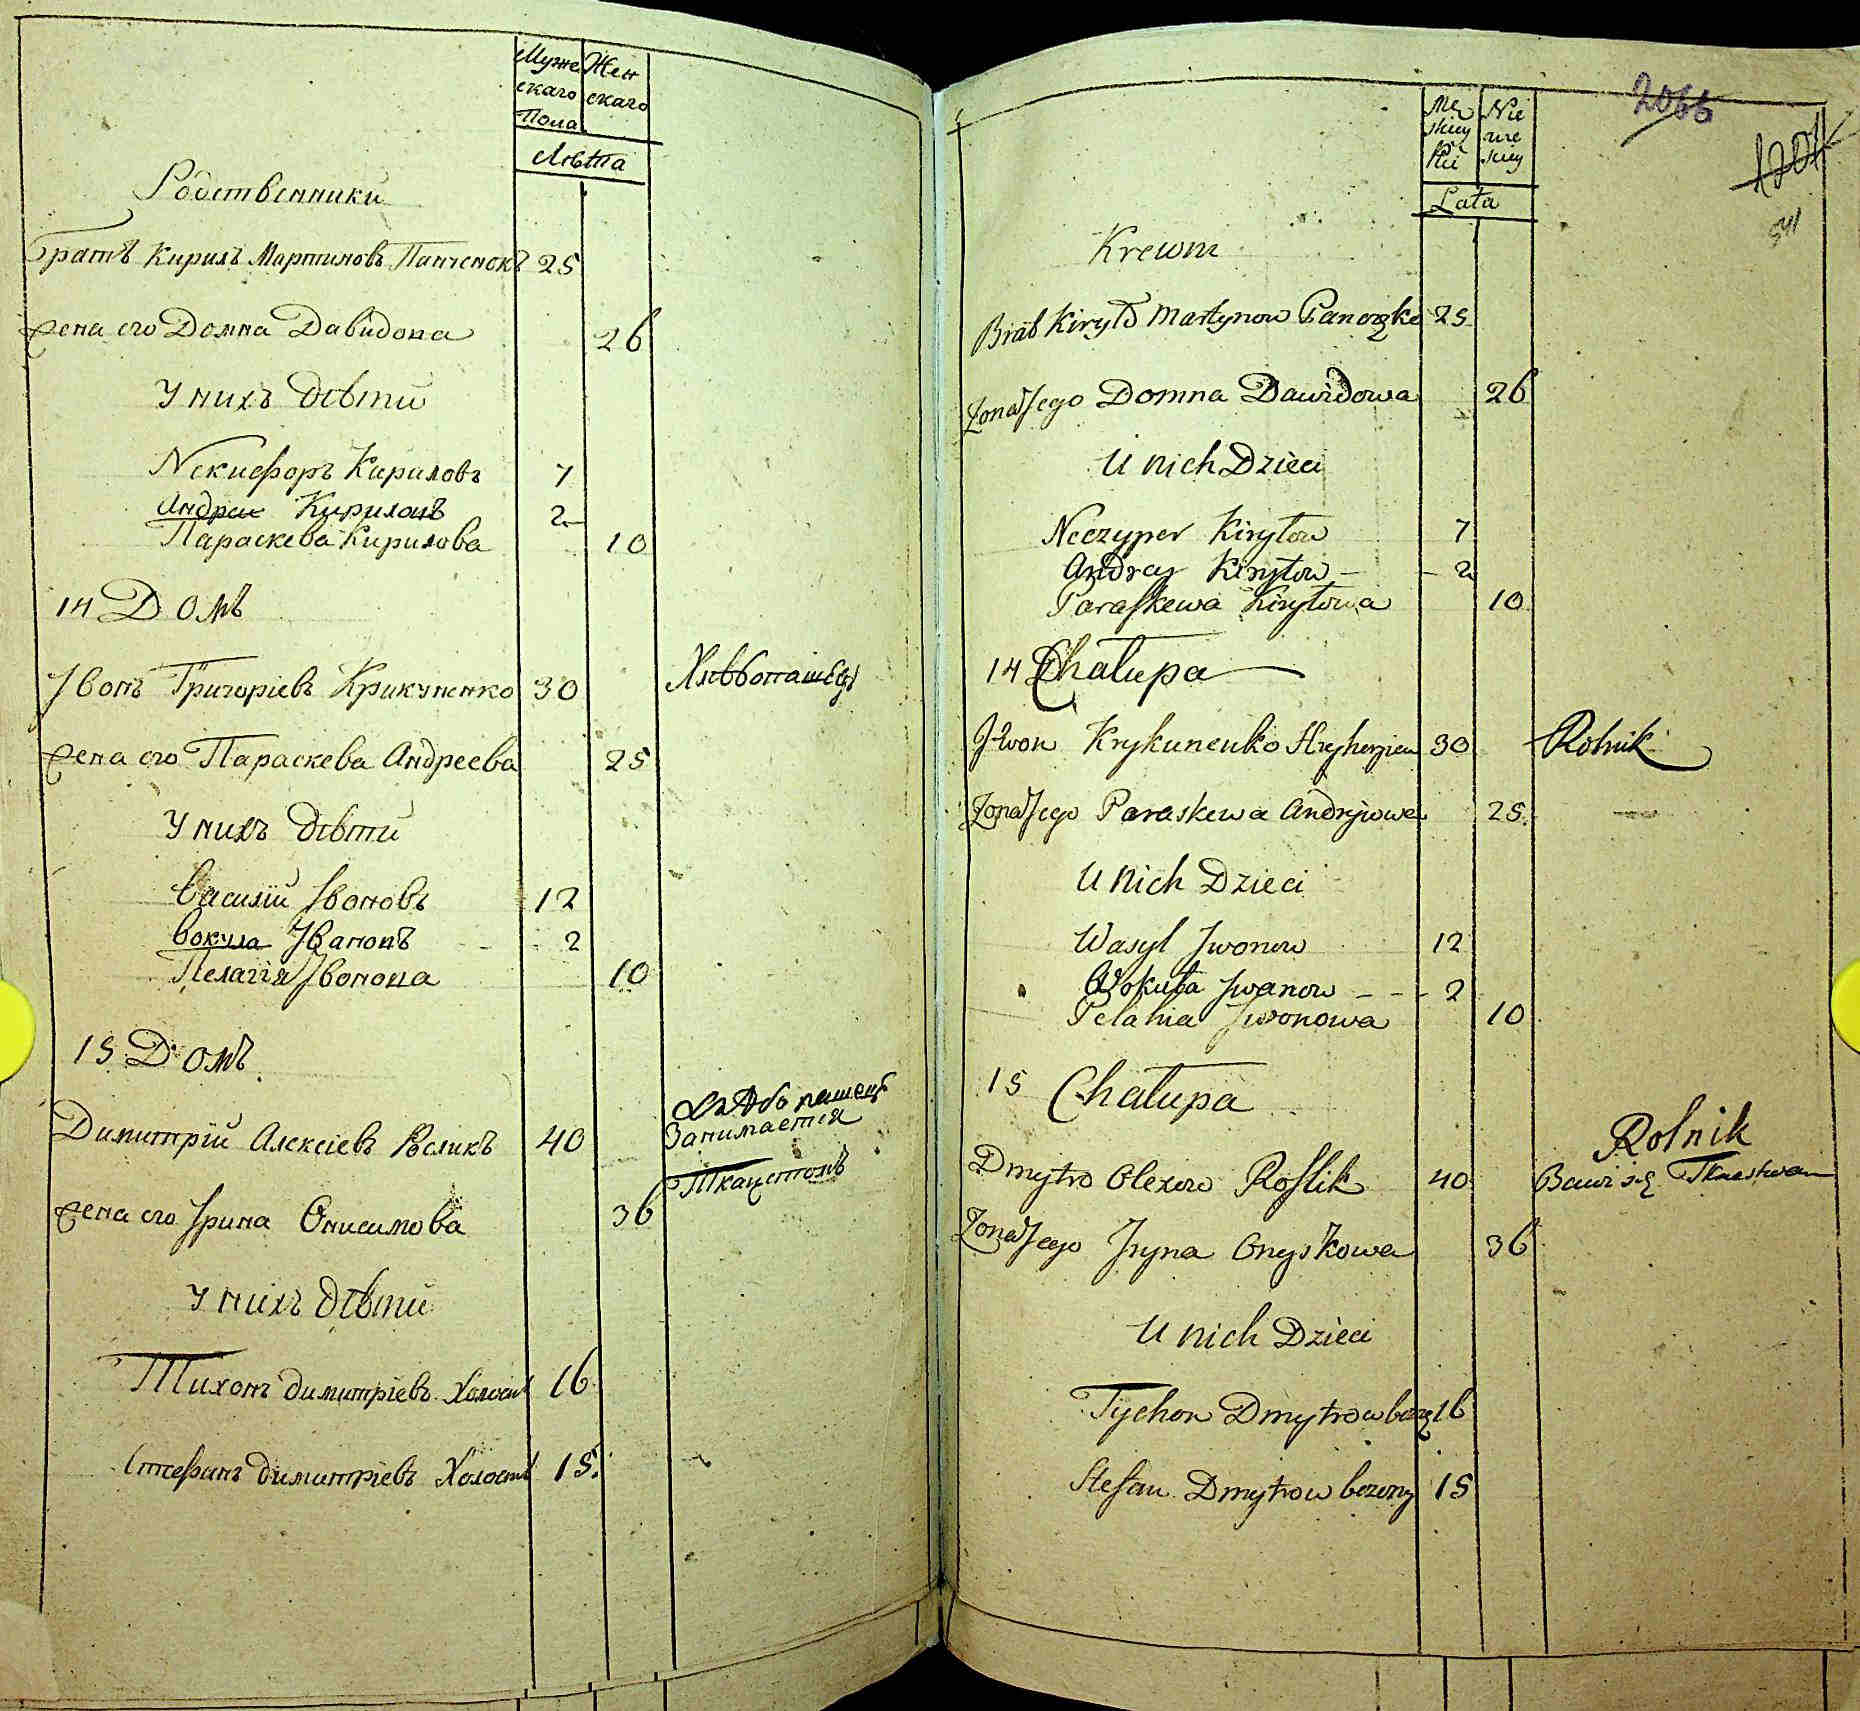 Муже Жен
скаго скаго
Пола
Лѣта
Родственники
Братъ Кирилъ Мартиновъ Панченокъ 25
Жена его Домна Давидова 26
У нихъ дѣти
Никифоръ Кириловъ 7
Андрей Кириловъ 2
Параскева Кирилова 10
14 Домъ
Ивонъ Григоріевъ Крикуненко 30 Хлѣбопашецъ
Жена его Параскева Андреева 25
У нихъ дѣти
Василій Ивоновъ 12
Вокула Ивановъ 2
Пелагія Ивонова 10
15 Домъ
Хлѣбопашецъ
Димитрій Алексіевъ Росликъ 40 Занимается
Ткацетомъ
Жена его Ирина Онисимова 36
У нихъ дѣти
Тихонъ Димитріевъ Холостъ 16
Стефанъ Димитріевъ Холостъ 15
2066
1201
541
Mę Nie
skiey wie
Płci skiey
Lata
Krewni
Brat Kiryło Martynow Panczko 25
Żona Jego Domna Dawidowa 26
U nich Dzieci
Neczyper Kiryłow 7
Andrey Kiryłow 2
Paraskewa Kiryłowa 10
14 Chałupa
Iwon Krykunenko Hryhorjew 30 Rolnik
Żona Jego Paraskewa Andrijowa 25
U nich Dzieci
Wasyl Iwonow 12
Wokuła Iwanow 2
Pelahia Iwonowa 10
15 Chałupa
Rolnik
Dmytro Olexow Roslik 40 Bawi się Tkactwem
Żona Jego Iryna Onyśkowa 36
U nich Dzieci
Tychon Dmytrow bezż 16
Stefan Dmytrow bezżeny 15